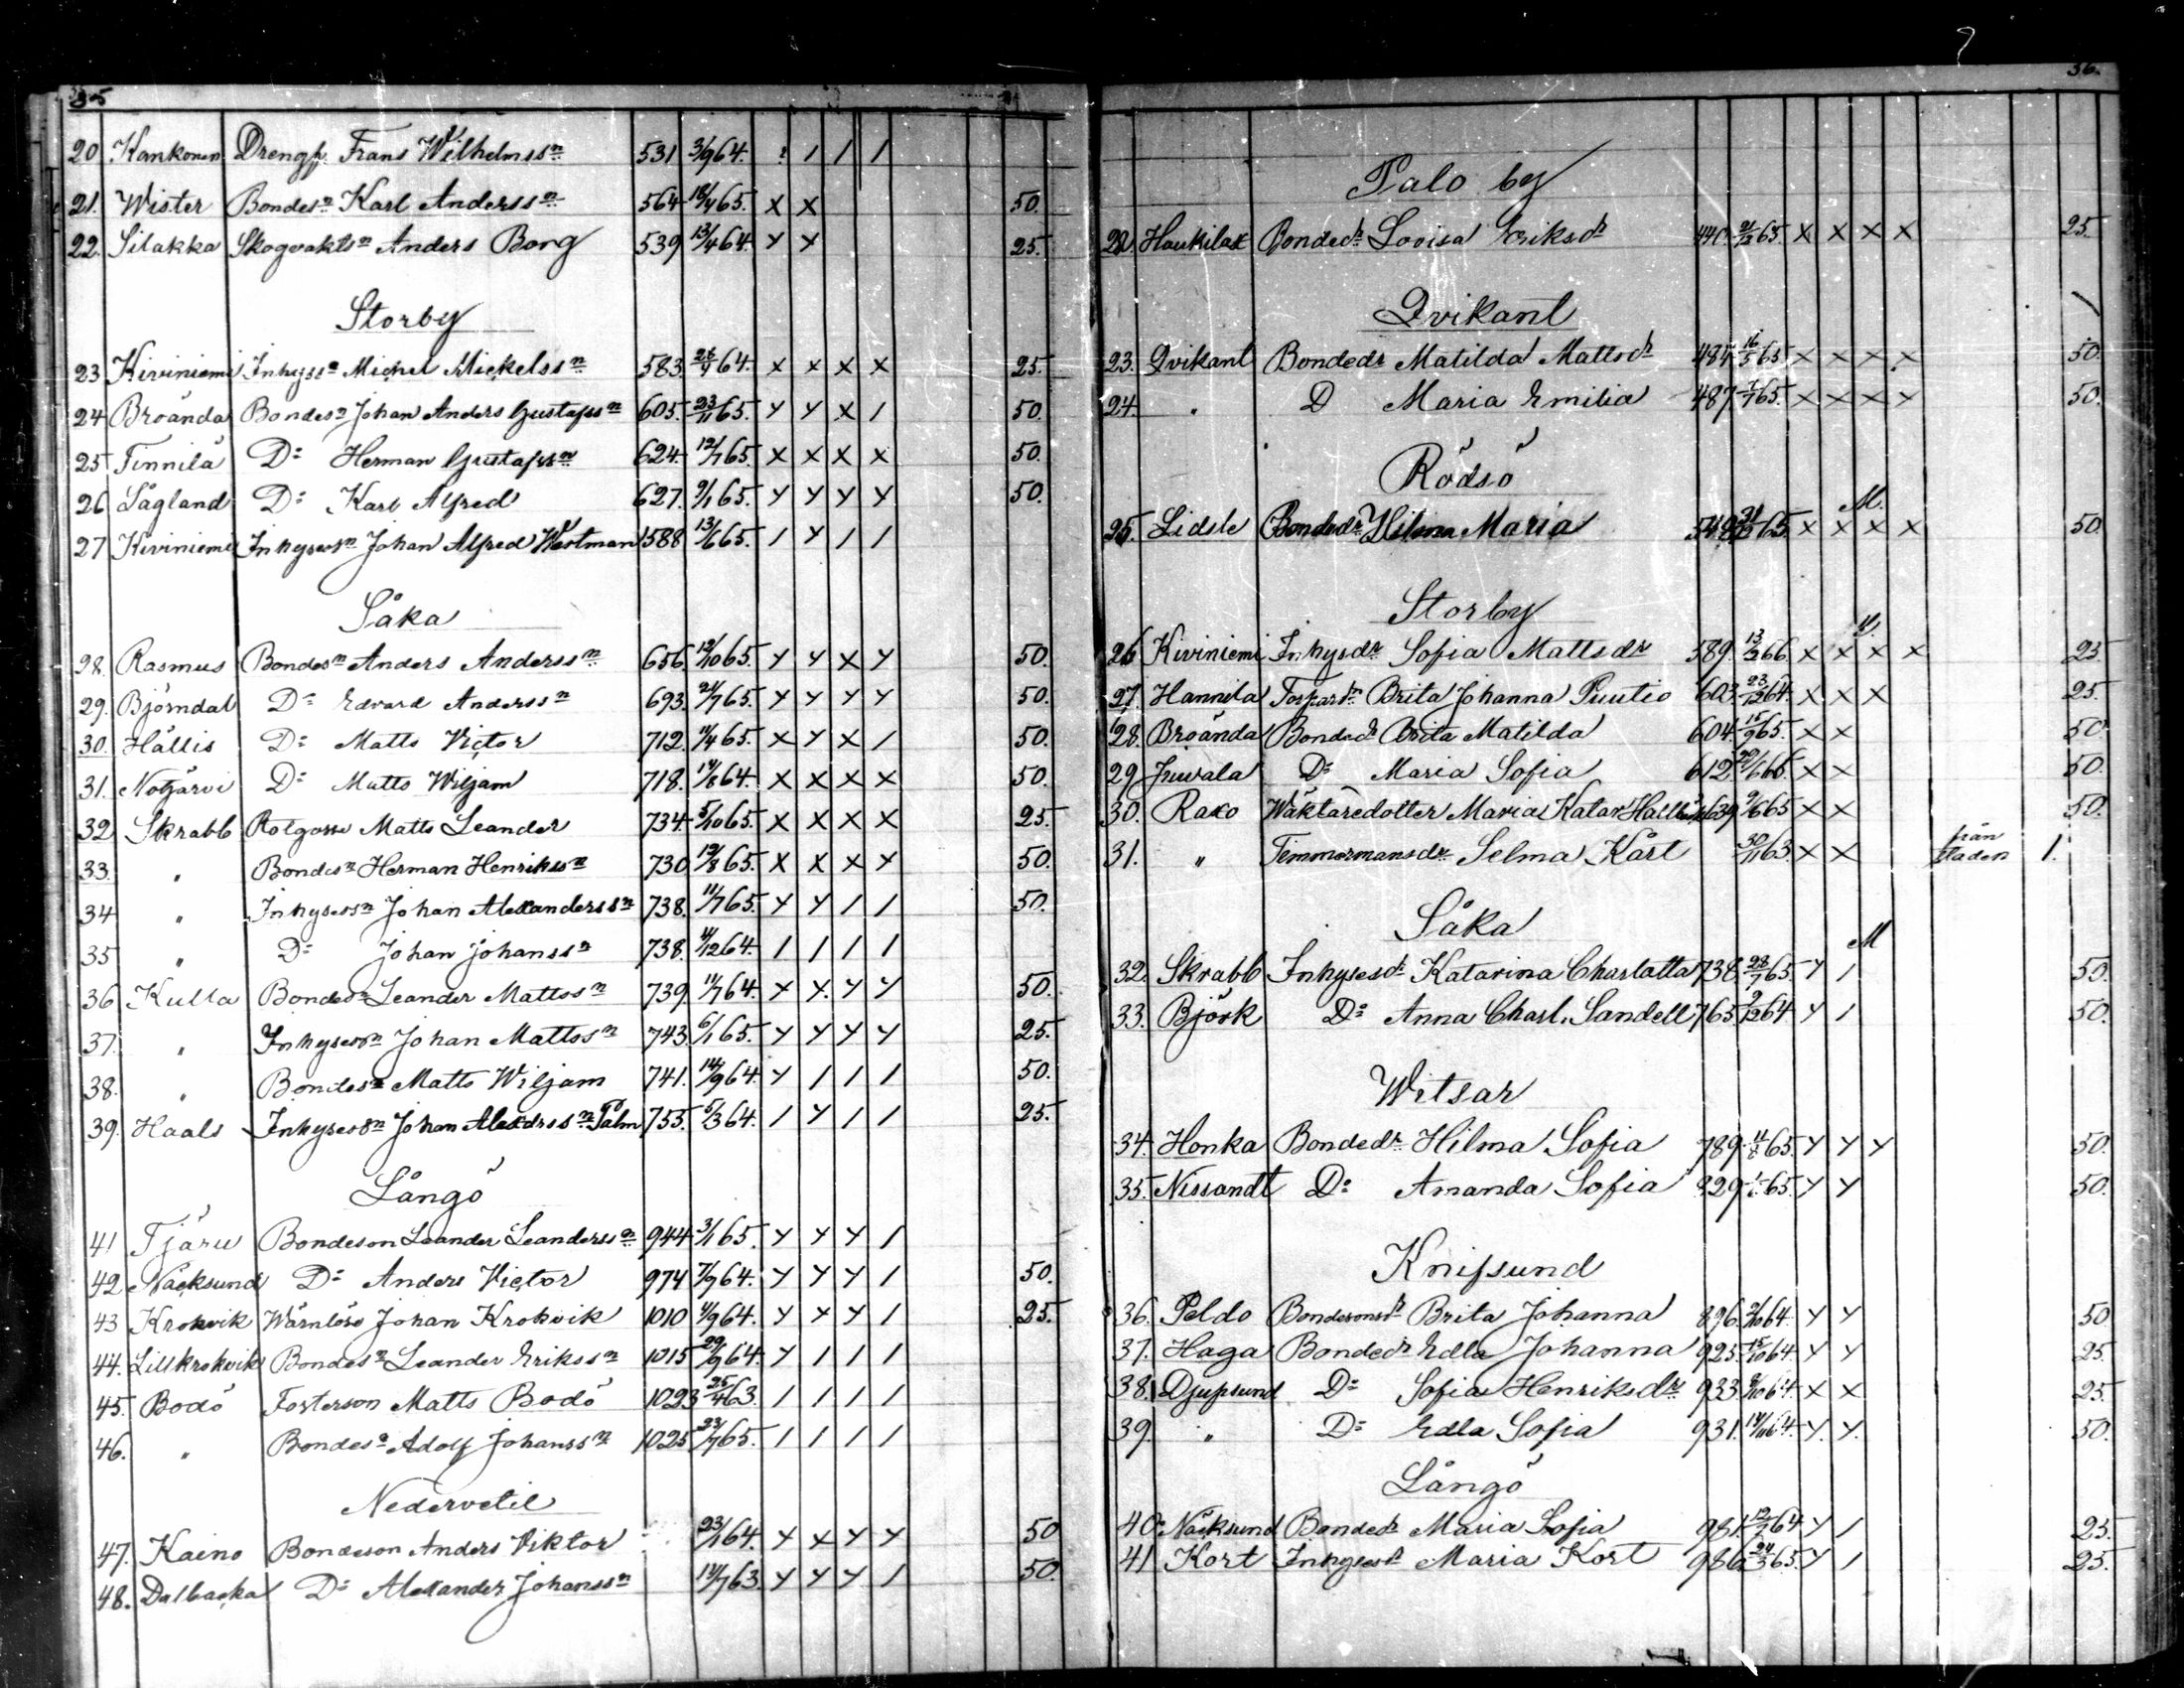 35
20 Kankonen Drengp. Frans Wilhelmss:n 531 3/9 64. : / / /
21. Wister Bondes:n Karl Anderss:n 564 18/4 65. x x 50.
22. Silakka Skogvakts:n Anders Borg 539 13/4 64. y y 25.
Storby
23 Kiviniemi Inhyss:n Michel Mickelss:n 583. 64. x x x x 25.
24 Broända Bondes:n Johan Anders Gustafss:n 605. 23/11 65. y y x / 50.
25 Finnilä D:o Herman Gustafss:n 624. 12/7 65. x x x x 50.
26 Sågland D:o Karl Alfred 627. 9/1 65. y y y y 50.
27 Kiviniemi Inhyses:n Johan Alfred Westman 588 13/6 65. / y / /
Såka
28. Rasmus Bondes:n Anders Anderss:n 656. 12/10 65. y y x y 50.
29. Björndal D:o Edvard Anderss:n 693. 21/7 65. y y y y 50.
30. Hällis D:o Matts Victor 712. 11/4 65. x y x / 50.
31. Notjärvi D:o Matts Wiljam 718. 64. x x x x 50.
32 Skrabb Rotgosse Matts Leander 734. 5/10 65. x x x x 25.
33. " Bondes:n Herman Henrikss:n 730 12/8 65. x x x y 50.
34 " Inhyses:n Johan Alexanderss:n 738. 11/7 65. y y / / 50.
35 " D:o Johan Johanss:n 738. 4/12 64. / / / /
36 Kulla Bondes:n Leander Mattss:n 739. 11/7 64. y y. y y 50.
37. " Inhyses:n Johan Mattss:n 743. 6/1 65. y y y y 25.
38. " Bondes:n Matts Wiljam 741. 14/9 64. y / / / 50.
39. Haals Inhyses:n Johan Alexdrss:n Palm 755. 5/3 64. / y / / 25.
Långö
41 Tjäru Bondeson Leander Leanderss:n 944 3/1 65. y y y /
42 Näcksund D:o Anders Victor 974 7/9 64. y y y / 50.
43 Krokvik Wärnlöse Johan Krokvik 1010 4/9 64. y y y / 25.
44. Lillkrokvik Bondes:n Leander Erikss:n 1015 29/9 64. y / / /
45. Bodö Fosterson Matts Bodö 1023 25/4 63. / / / /
46. " Bondes:n Adolf Johanss:n 1025 23/7 65. / / / /
Nedervetil
47. Kaino Bondeson Anders Viktor 23/1 64. y x y y 50
48. Dalbacka D:o Alexander Johanss:n 14/7 63. y y y / 50.
36.
Palo by
22. Haukilax Bonded:r Lovisa Eriksd:r 440. 65. x x x x 25.
Qvikant
23. Qvikant Bonded:r Matilda Mattsd:r 484 16/5 65 x x x x 50.
24. " D Maria Emilia 487 65. x x x x 50.
Rödsö
M.
25. Lidsle Bonded:r Hilma Maria 65. x x x x 50.
Storby
26 Kiviniemi Inhysd:r Sofia Mattsd:r 589 13/3 66. x x x x 25
27. Hannila Brita Johanna Puutio 603. 23/12 64. x x x 25.
28. Broända Bonded:r Brita Matilda 604 15/9 65. x x 50.
29 Juvala D:o Maria Sofia 612. x x 50.
30. Raxo Wäktaredotter Maria Katar 639 9/6 65 x x 50.
31. " Timmermansd:r Selma Kårt 30/11 63. x x från staden 1.
Såka
M
32. Skrabb Inhysesd:r Katarina Charlatta 738 28/7 65. y / 50.
33. Björk D:o Anna Charl. Sandell 765. 9/12 64 y / 50.
Witsar
34. Honka Bonded:r Hilma Sofia 789. 65. y y y 50.
35. Nissandt D:o Amanda Sofia 829 65. y y 50.
Knifsund
36. Peldo Bondesonsd:r Brita Johanna 896. 64. y y 50
37. Haga Bonded:r Edla Johanna 925. 15/10 64. y y 25.
38. Djupsund D:o Sofia Henriksd:r 933. 8/10 64. x x 25.
39. " D:o Edla Sofia 931. 64. y. y. 50.
Långö
40. Näcksund Bonded:r Maria Sofia 981. 64 y / 25.
41 Kort Inhysesd:r Maria Kort 986. 24/3 65. y / 25.